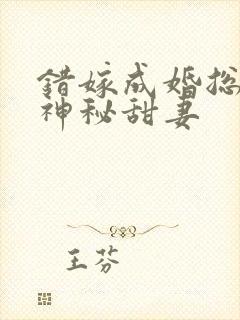 错嫁成婚总
神秘甜妻
王芬